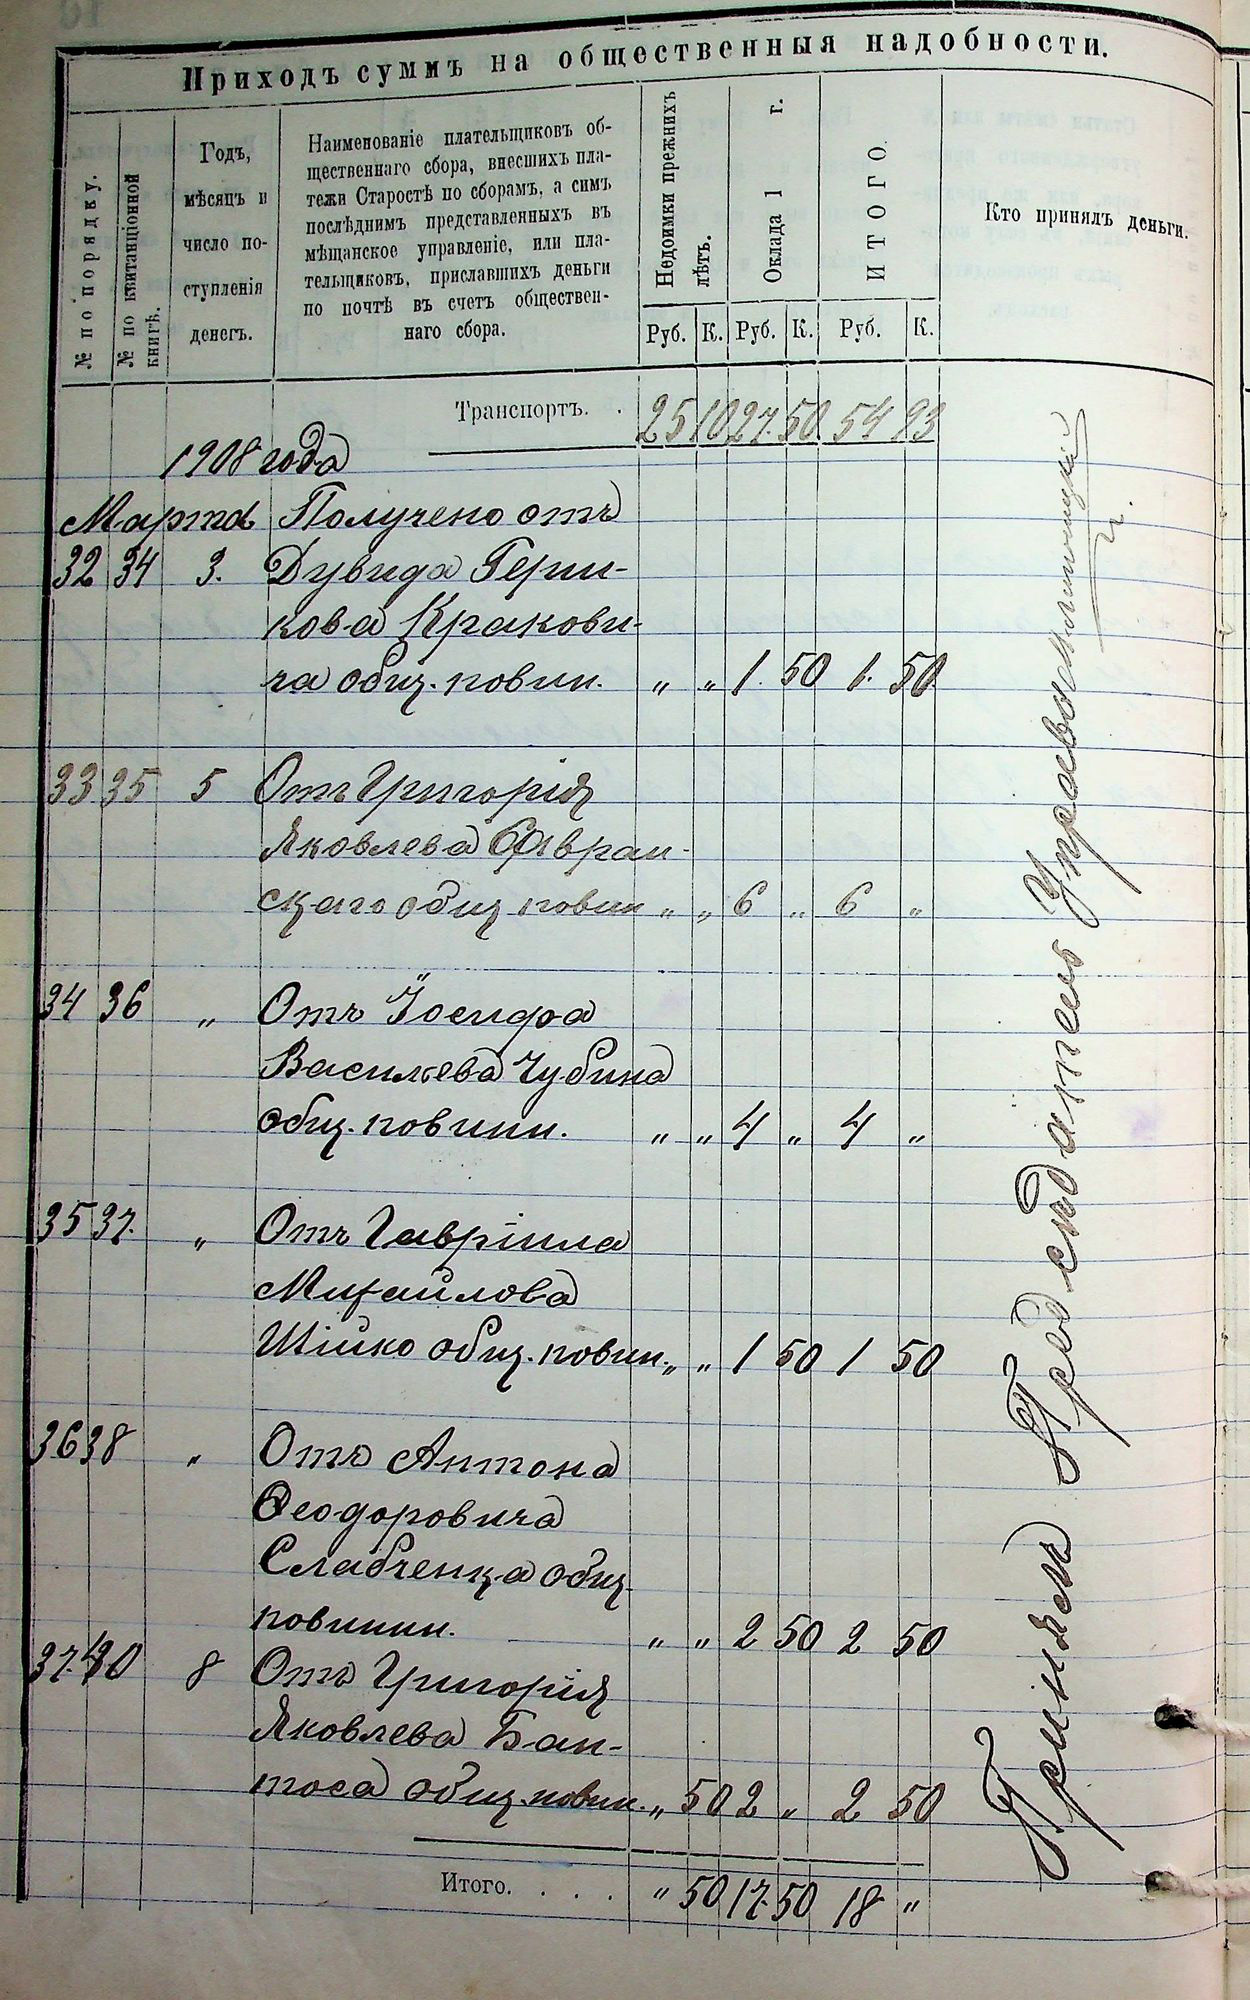 Приходъ суммъ на общественныя надобности.
№ по порядку.
№ по квитанціонной книгѣ.
Годъ,
мѣсяцъ и
число по-
ступленія
денегъ.
Наименованіе плательщиковъ об-
щественнаго сбора, внесшихъ пла-
тежи Старостѣ по сборамъ, а симъ
послѣднимъ представленныхъ въ
мѣщанское управленіе, или пла-
тельщиковъ, приславшихъ деньги
по почтѣ въ счетъ обществен-
наго сбора.
Недоимки прежнихъ лѣтъ.
Оклада 1 г.
ИТОГО.
Кто принялъ деньги.
Руб. К. Руб. К. Руб. К.
Транспортъ. . 25 10 27. 50 54 93
1908 года
Марта Получено отъ
32 34 3. Дувида Герш-
кова Кракови-
ча общ. повин. „ „ 1. 50 1. 50
33 35 5 Отъ Григорія
Яковлева
скаго общ повин „ „ 6 „ 6 „
34 36 „ Отъ Іосифа
Васильева Чубина
общ. повинн. „ „ 4 „ 4 „
35 37. „ Отъ Гавріила
Михайлова
Шійко общ. повин. „ „ 1 50 1 50
36 38 „ Отъ Антона
Ѳеодоровича
Слабченка общ.
повинн. „ „ 2 50 2 50
37. 40 8 Отъ Григорія
Яковлева Бан-
тоса общ. повин. „ 50 2 „ 2 50
Итого. . . . „ 50 17. 50 18 „
Принялъ Предсѣдатель Управы